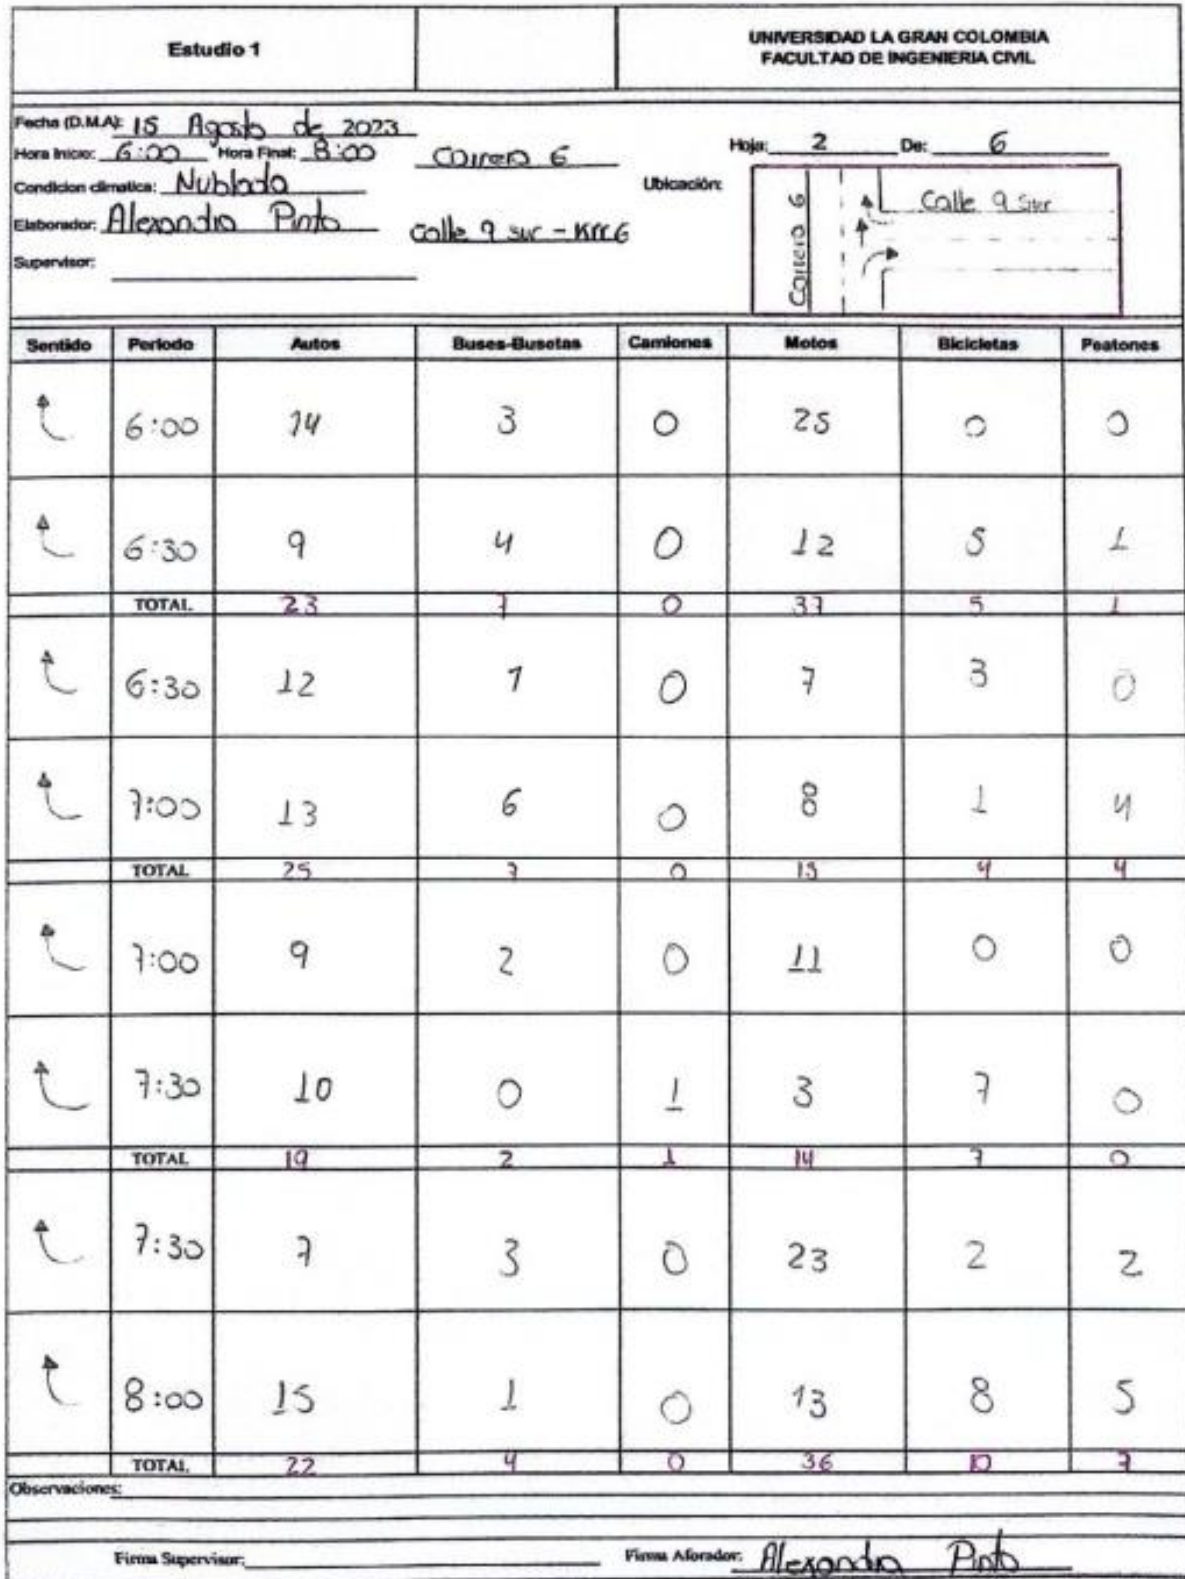 Estudio 1
UNIVERSIDAD LA GRAN COLOMBIA
FACULTAD DE INGENIERIA CIVIL
Fecha (D.M.A): 15 Agosto de 2023
Hora Inicio: 6:00 Hora Final: 8:00 Carrera 6
Hoja: 2 De: 6
Condicion climatica: Nublado
Ubicación:
Elaborador: Alexandra Pinto Calle 9 sur - Krr6
Supervisor:
Carrera 6
Calle 9 Sur
Sentido Periodo Autos Buses-Busetas Camiones Motos Bicicletas Peatones
6:00 14 3 0 25 0 0
6:30 9 4 0 12 5 1
TOTAL 23 7 0 37 5 1
6:30 12 1 0 7 3 0
7:00 13 6 0 8 1 4
TOTAL 25 7 0 15 4 4
7:00 9 2 0 11 0 0
7:30 10 0 1 3 7 0
TOTAL 19 2 1 14 7 0
7:30 7 3 0 23 2 2
8:00 15 1 0 13 8 5
TOTAL 22 4 0 36 10 7
Observaciones:
Firma Supervisor: Firma Aforador: Alexandra Pinto